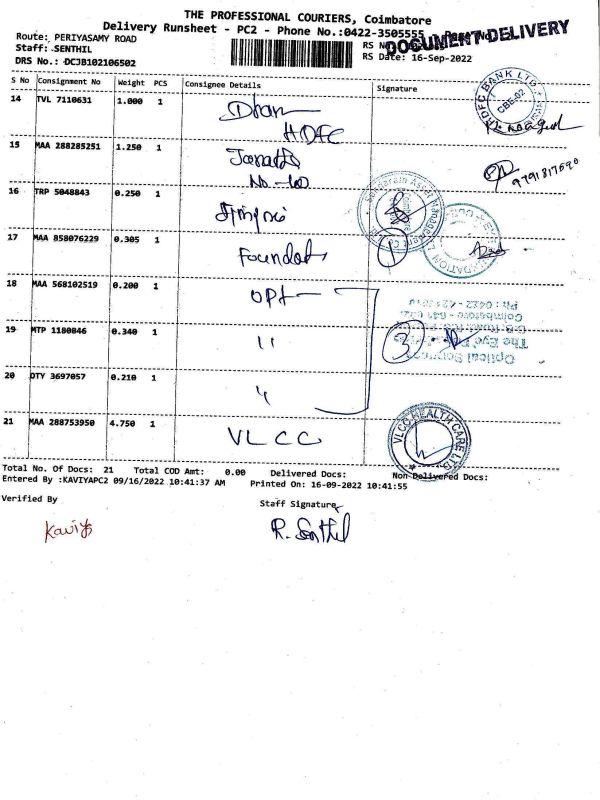 THE PROFESSIONAL COURIERS, Coimbatore
Delivery Runsheet - PC2 - Phone No.:0422-3505555
DOCUMENT DELIVERY
Route: PERIYASAMY ROAD
Staff: SENTHIL
RS Date: 16-Sep-2022
DRS No.: DCJB102106502
S No Consignment No Weight PCS Consignee Details Signature
14 TVL 7110631 1.000 1
HDFC
15 MAA 288285251 1.250 1
9791817590
16 TRP 5048843 0.250 1
17 MAA 858076229 0.305 1
18 MAA 568102519 0.200 1 OPt
19 MTP 1180846 0.340 1 "
3
20 DTY 3697057 0.210 1 "
21 MAA 288753950 4.750 1 VLCC
VLCC HEALTH CARE LTD
Total No. Of Docs: 21 Total COD Amt: 0.00 Delivered Docs: Non Delivered Docs:
Entered By :KAVIYAPC2 09/16/2022 10:41:37 AM Printed On: 16-09-2022 10:41:55
Verified By Staff Signature
Kaviya R. Senthil